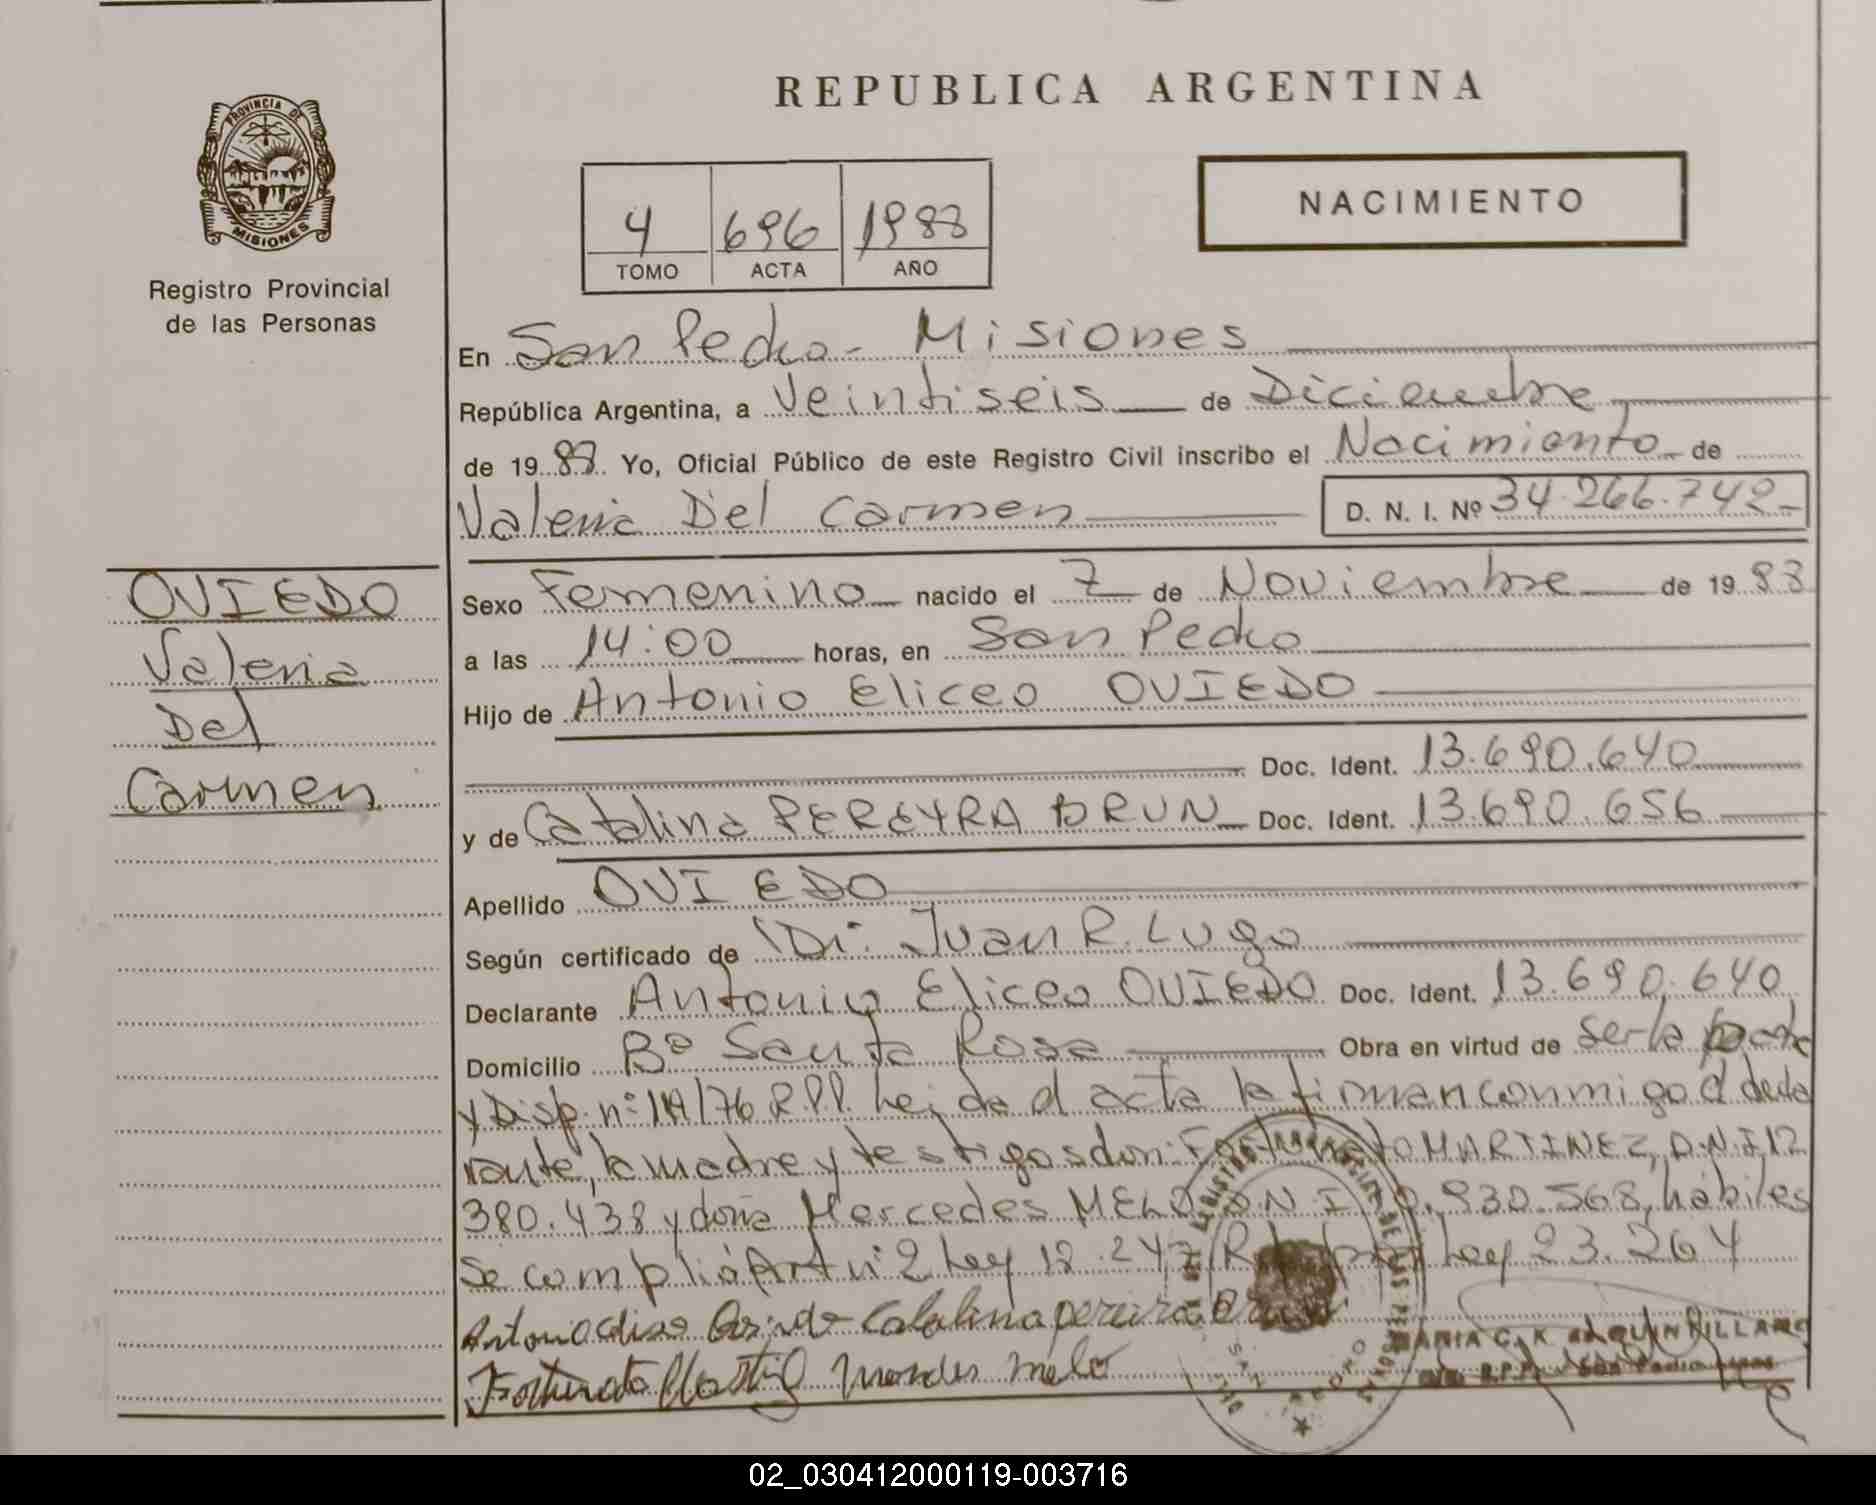 REPUBLICA ARGENTINA
PROVINCIA DE
MISIONES
Registro Provincial
de las Personas
4 696 1988
TOMO ACTA AÑO
NACIMIENTO
En San Pedro - Misiones
República Argentina, a Veintiseis de Diciembre
de 1988 Yo, Oficial Público de este Registro Civil inscribo el Nacimiento de
Valeria Del Carmen D. N. I. Nº 34.266.742-
OVIEDO
Valeria
Del
Carmen
Sexo Femenino nacido el 7 de Noviembre de 1988
a las 14:00 horas, en San Pedro
Hijo de Antonio Eliceo OVIEDO
Doc. Ident. 13.690.640
y de Catalina PEREYRA BRUN Doc. Ident. 13.690.656
Apellido OVIEDO
Según certificado de Dr. Juan R. Lugo
Declarante Antonio Eliceo OVIEDO Doc. Ident. 13.690.640
Domicilio Bº Santa Rosa Obra en virtud de ser la padre
y Disp. nº 1A/76 R.P.P. Leida el acta la firman conmigo el decla
rante, la madre y testigos don: Fortunato MARTINEZ, D.N.I 12
380.438 y doña Mercedes MELO D.N.I 930.568, hábiles
Se complió Art nº 2 Ley 18.247 Ley 23.264
Catalina pereira Brun
Fortunato melo
MARIA C. K.
R.P.P. San Pedro
02_030412000119-003716